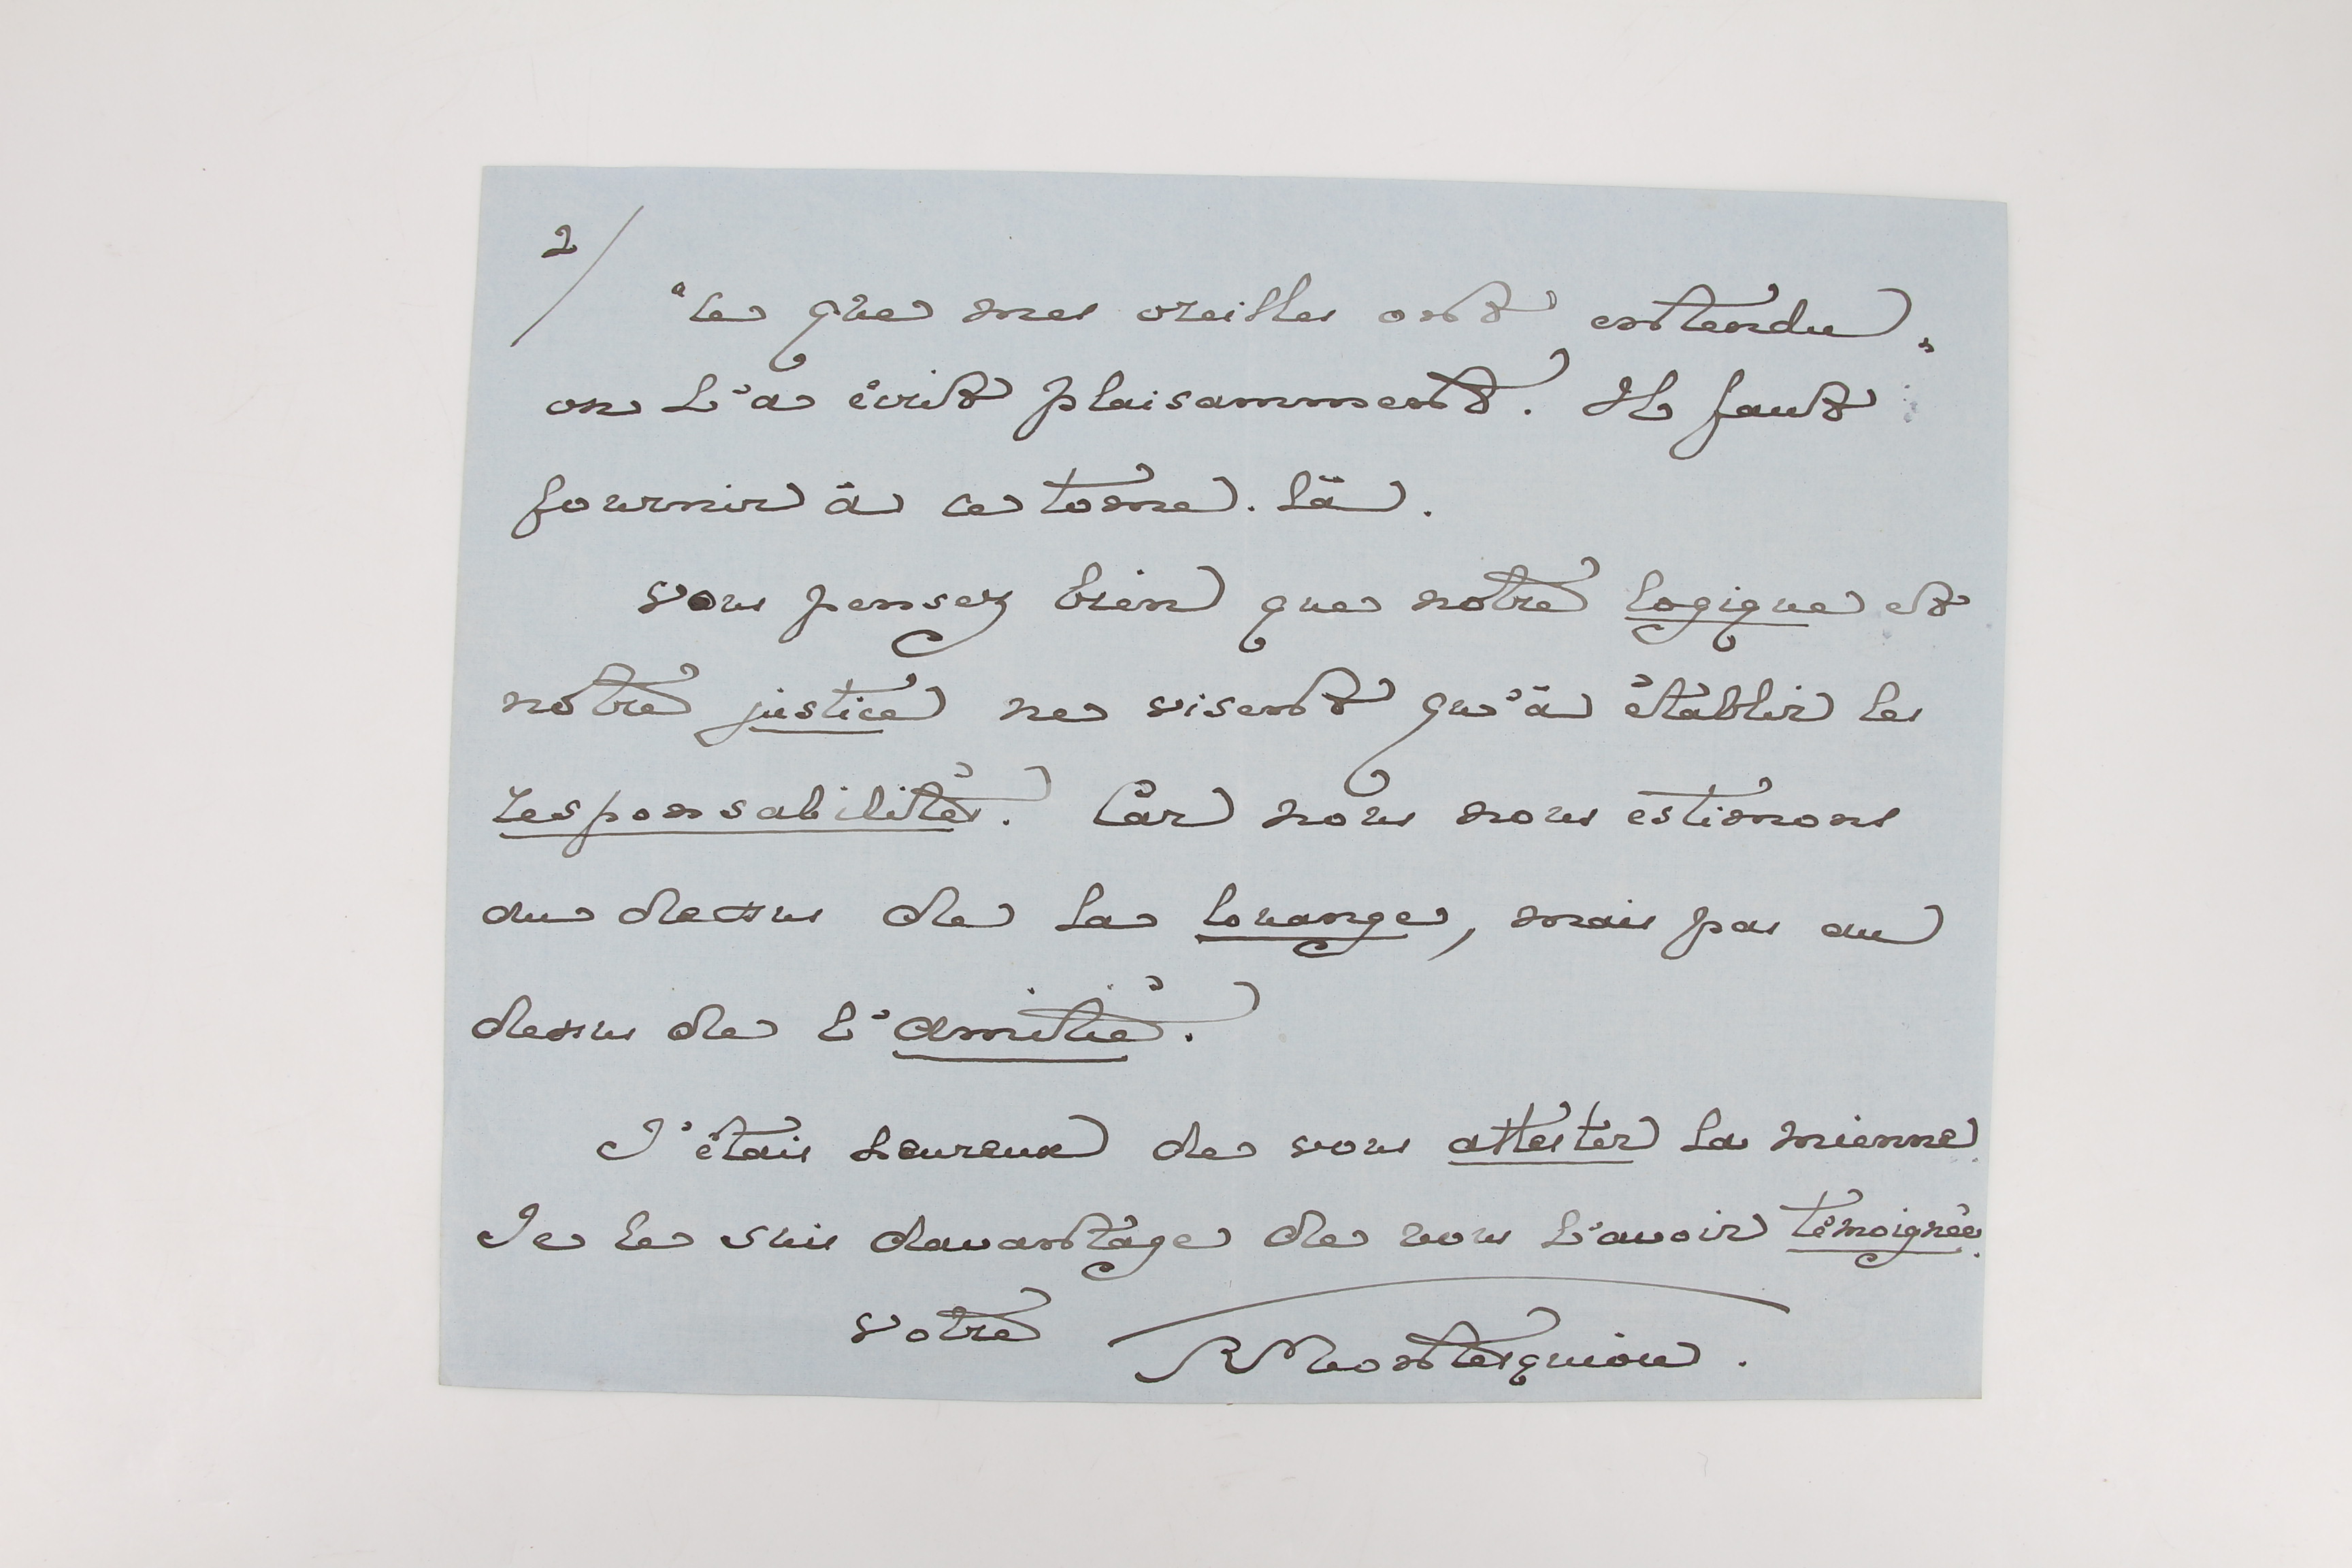 2/
"Ce que mes oreilles ont entendu",
on l'a écrit plaisamment. Il faut
fournir à ce tome-là.
Vous pensez bien que notre logique et
notre justice ne visent qu'à établir les
responsabilités. Car nous nous estimons
au dessus de la louange, mais pas au
dessus de l'amitié.
J'étais heureux de vous attester la mienne.
Je le suis davantage de vous l'avoir témoignée.
Votre RMontesquiou.